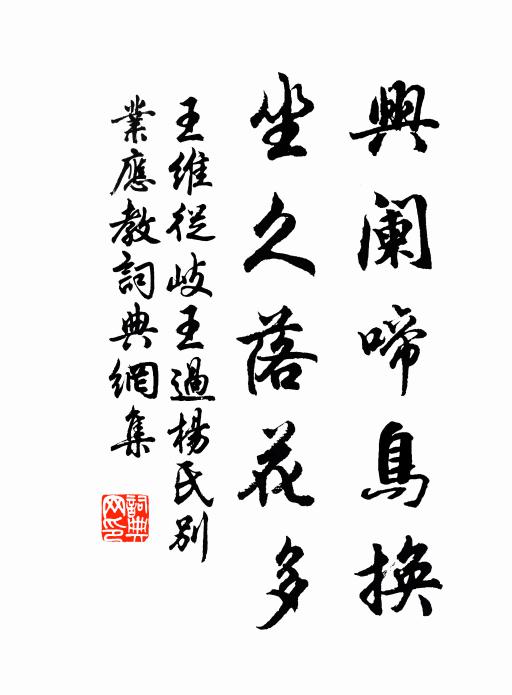 興闌啼鳥換
坐久落花多
王維從岐王過楊氏別
業應教詞典網集
詞典网印